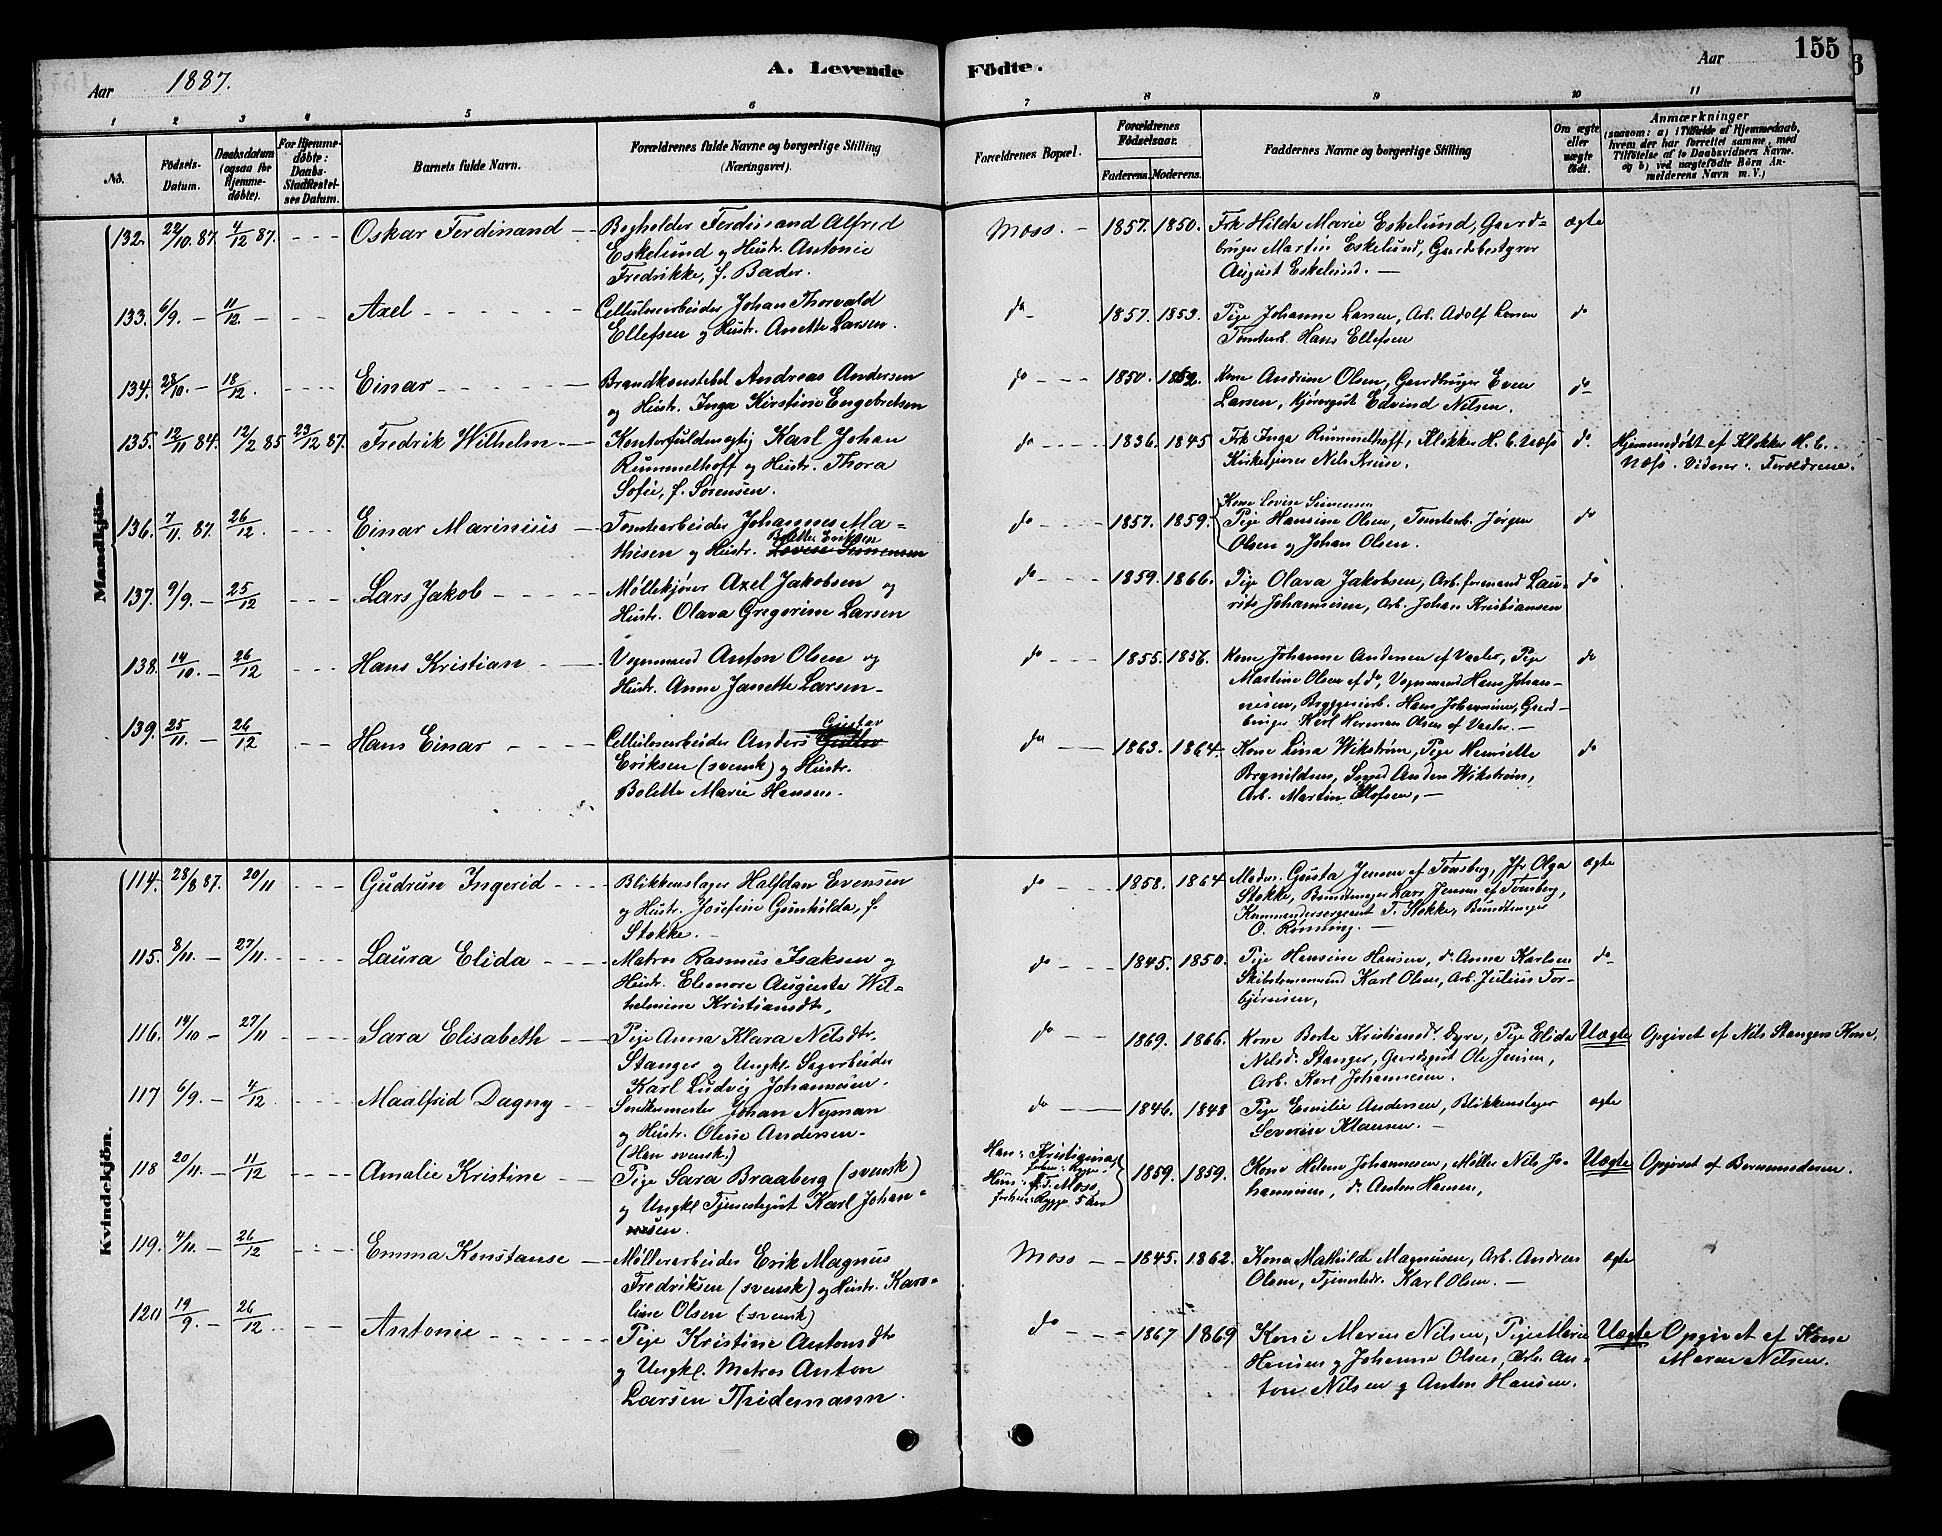 Aar 1887. A. Levende Födte. Aar 155
1 2 3 4 5 6 7 8 9 10 11
No.
Fødsels-
Datum.
Daabsdatum
(ogsaa for
Hjemme-
døbte).
For Hjemme-
døbte:
Daabs-
Stadfæstel-
ses Datum.
Barnets fulde Navn.
Forældrenes fulde Navne og borgerlige Stilling
(Næringsvei).
Forældrenes Bopæl.
Forældrenes
Födselsaar.
Faderens. Moderens.
Faddernes Navne og borgerlige Stilling
Om ægte
eller
uægte
født.
Anmærkninger
(saasom: a) i Tilfælde af Hjemmedaab,
hvem der har forrettet samme, med
Tilføielse af to Daabsvidners Navne.
og b) ved uægtefødte Börn An-
melderens Navn m. V.)
Mandkjön.
132. 22/10. 87. 4/12 87. - - - Oskar Ferdinand - - Bogholder Ferdinand Alfred
Eskelund og Hustr. Antonie
Fredrikke, f. Bader.
Moss. - 1857. 1850. Frk Hilda Marie Eskelund, Gaard-
bruger Martin Eskelund, Gaardsbestyrer
August Eskelund. -
ægte
133. 6/9. - 11/12. - - - - Axel - - - - - Cellulosearbeider Johan Thorvald
Ellefsen og Hustr. Anette Larsen.
do - 1857. 1853. Pige Johanne Larsen, Arb. Adolf Larsen
Tomterb. Hans Ellefsen
do
134. 28/10 - 18/12. - - - - Einar - - - - Brandkonstabel Andreas Andersen
og Hustr. Inga Kirstine Engebretsen
do - - - 1850. 1862. Kone Andrine Olsen, Gaardbruger Even
Larsen, Kjøregut Edvind Nilsen.
do
135. 12/11 84. 12/2 85 23/12 87. Fredrik Wilhelm. - Kontorfuldmægtig Karl Johan
Rummelhoff og Hustr. Thora
Sofie, f. Sørensen.
do - - 1836. 1845 Frk Inga Rummelhoff, Klokker H. C. Næss
Kirketjener Nils Kruse.
do. Hjemmedøbt af Klokker H. C.
Næss. Vidner: Forældrene.
136. 7/11. 87. 26/12. - - - Einar Marinius - Tomtearbeider Johannes Ma-
thisen og Hustr. Bolette Eriksen
Lovise Simensen
do - - - 1857. 1859. Kone Lovise Simensen
Pige Hansine Olsen, Tomterb. Jørgen
Olsen og Johan Olsen.
do
137. 9/9. - 25/12 - - - Lars Jakob - - - - Møllekjører Axel Jakobsen og
Hustr. Olava Gregorine Larsen
do - - - 1859. 1866. Pige Olava Jakobsen, Arb. formand Lau-
rits Johannesen, Arb. Johan Kristiansen
do
138. 14/10. - 26/12 - - - Hans Kristian - - Vognmand Anton Olsen og
Hustr. Anne Janette Larsen -
do - - - 1855. 1856. Kone Johanne Andersen af Vaaler, Pige
Martine Olsen af do, Vognmand Hans Johan-
nesen, Bryggeriarb. Hans Johannesen, Gaard-
bruger Karl Herman Olsen af Vaaler. -
do
139. 25/11. - 26/12 - - Hans Einar - - - - Cellulosearbeider Anders Gustav
Eriksen (svensk) og Hustr.
Bolette Marie Hansen.
do - - 1863. 1864. Kone Lina Wikstrøm, Pige Henriette
Brynildsen, Smed Anders Wikstrøm,
Arb. Martin Olofsen, -
do
Kvindekjön.
114. 28/8 87. 20/11 - - - Gudrun Ingerid - - - Blikkenslager Halfdan Evensen
og Hustr. Josefine Gunhilda, f.
Stokke. -
do - - - 1858. 1864 Madm. Gusta Jensen af Tønsberg, Jfr Olga
Stokke, Bundtmager Lars Jensen af Tønsberg,
Kommandersergeant T. Stokke, Bundtmager
O. Rønning. -
ægte
115. 8/11. - 27/11. - - - Laura Elida - - - Matros Rasmus Isaksen og
Hustr. Elenore Auguste Wil-
helmine Kristiansdtr,
do - - - 1845. 1850. Pige Hansine Hansen, do Anna Karlsen
Skibstømmermand Karl Olsen, Arb. Julius Tor-
bjørnsen,
do
116. 14/10 - 27/11 - - - Sara Elisabeth - - Pige Anna Klara Nilsdtr.
Stanger og Ungkl. Sagarbeider
Karl Ludvig Johannesen.
do - - 1869. 1866. Kone Berte Kristiansdr Dyre, Pige Elida
Nilsdr Stanger, Gaardsgut Ole Jensen,
Arb. Karl Johannesen.
Uægte Opgivet af Nils Stangers Kone.
117 6/9. - 4/12 - - - Maalfrid Dagny - - Snedkermester Johan Nyman
og Hustr. Oline Andersen -
(Han svensk.)
do - - 1846. 1848 Pige Emilie Andersen, Blikkenslager
Severin Klausen. -
ægte
118 20/11. - 11/12 - - - Amalie Kristine - - Pige Sara Braaberg (svensk)
og Ungkl Tjenestegut Karl Johan-
nesen.
Han: Kristiania,
forhen: Rygge.
Hun: F. T. Moss,
forhen Rygge 5 Aar
1859. 1859. Kone Helene Johannesen, Møller Nils Jo-
hannesen, do Anton Hansen,
Uægte Opgivet af Barnemoderen.
119. 4/11. - 26/12 - - - Emma Konstanse - Møllerarbeider Erik Magnus
Fredriksen (svensk) og Hustr. Karo-
line Olsen (svensk)
Moss - - 1845. 1862. Kone Mathilde Magnusen, Arb. Andreas
Olsen, Tjenestedr. Karl Olsen. -
ægte
120 19/9. - 26/12. - - - Antonie - - - - - Pige Kristine Antonsdtr
og Ungkl. Matros Anton
Larsen Thidemann.
do - - - 1867 1869 Kone Maren Nilsen, Pige Marie
Hansen og Johanne Olsen, Arb. An-
ton Nilsen og Anton Hansen.
Uægte Opgivet af Kone
Maren Nilsen.